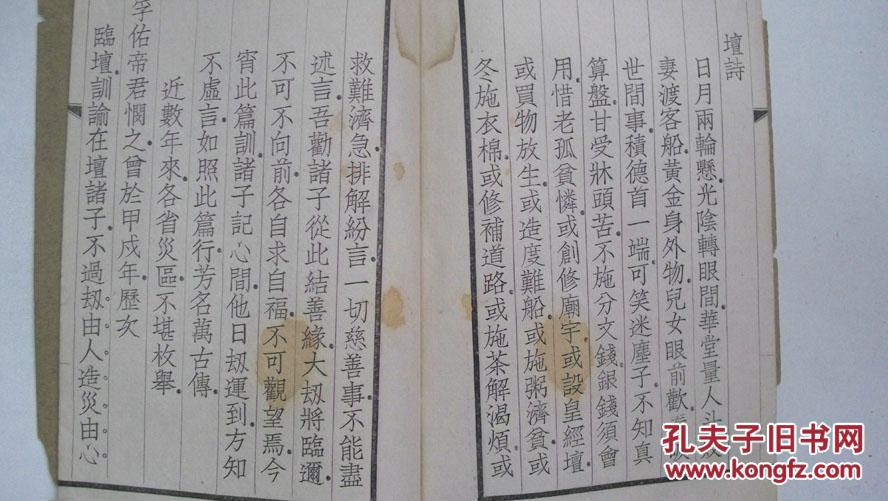 壇詩
日月兩輪懸光陰轉眼間華堂量人斗
妻渡客船黃金身外物兒女眼前歡
世間事積德首一端可笑迷塵子不知真
算盤甘受牀頭苦不施分文錢銀錢須會
用惜老孤貧憐或創修廟宇或設皇經壇
或買物放生或造度難船或施粥濟貧或
冬施衣棉或修補道路或施茶解渴煩或
救難濟急排解紛言一切慈善事不能盡
述言吾勸諸子從此結善緣大刼將臨邇
不可不向前各自求自福不可觀望焉今
宵此篇訓諸子記心間他日刼運到方知
不虛言如照此篇行芳名萬古傳
近數年來各省災區不堪枚舉
孚佑帝君憫之曾於甲戍年歷次
臨壇訓諭在壇諸子不過刼由人造災由心
孔夫子旧书网
www.kongfz.com